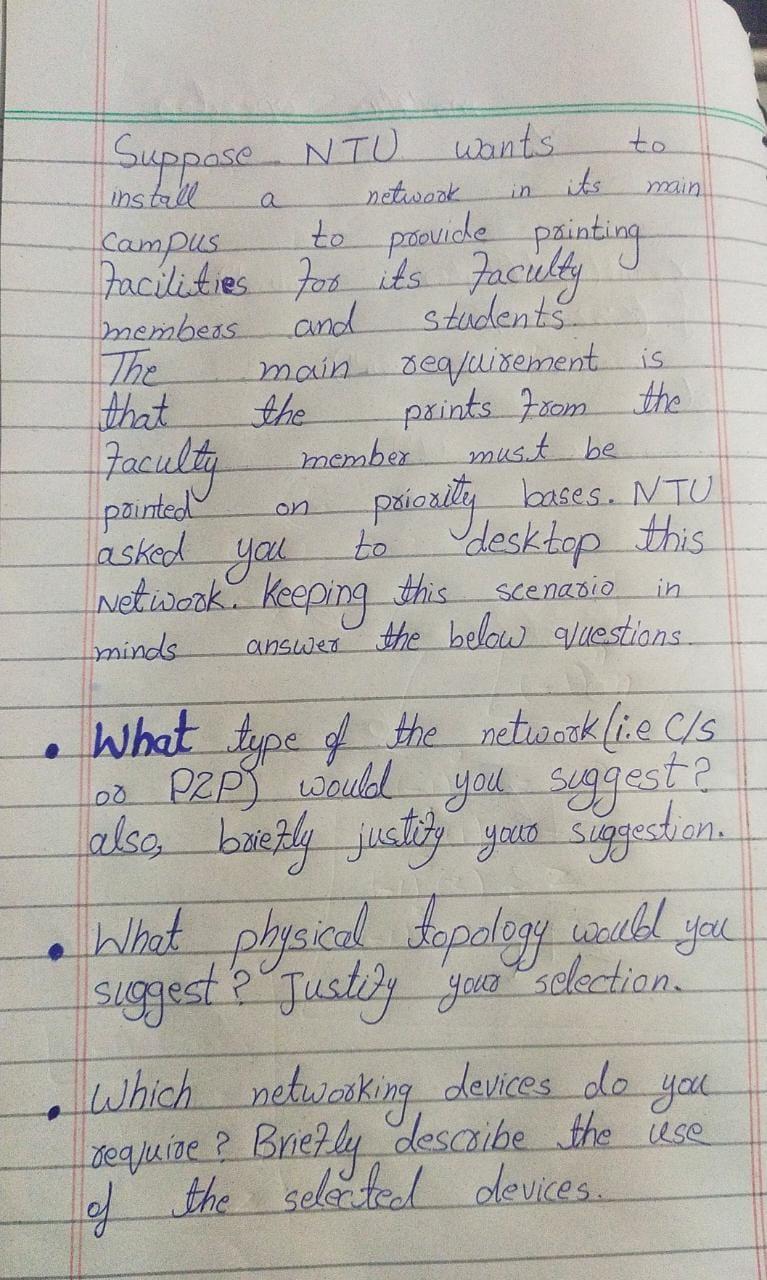 Suppose NTU wants to
install a network in its main
campus to provide printing
facilities for its faculty
members and students.
The main requirement is
that the prints from the
faculty member must be
printed on priority bases. NTU
asked you to desktop this
Network. Keeping this scenario in
minds answer the below questions.
• What type of the network (i.e C/S
or P2P) would you suggest?
also, briefly justify your suggestion.
• What physical topology would you
suggest? Justify your selection.
• Which networking devices do you
require? Briefly describe the use
of the selected devices.